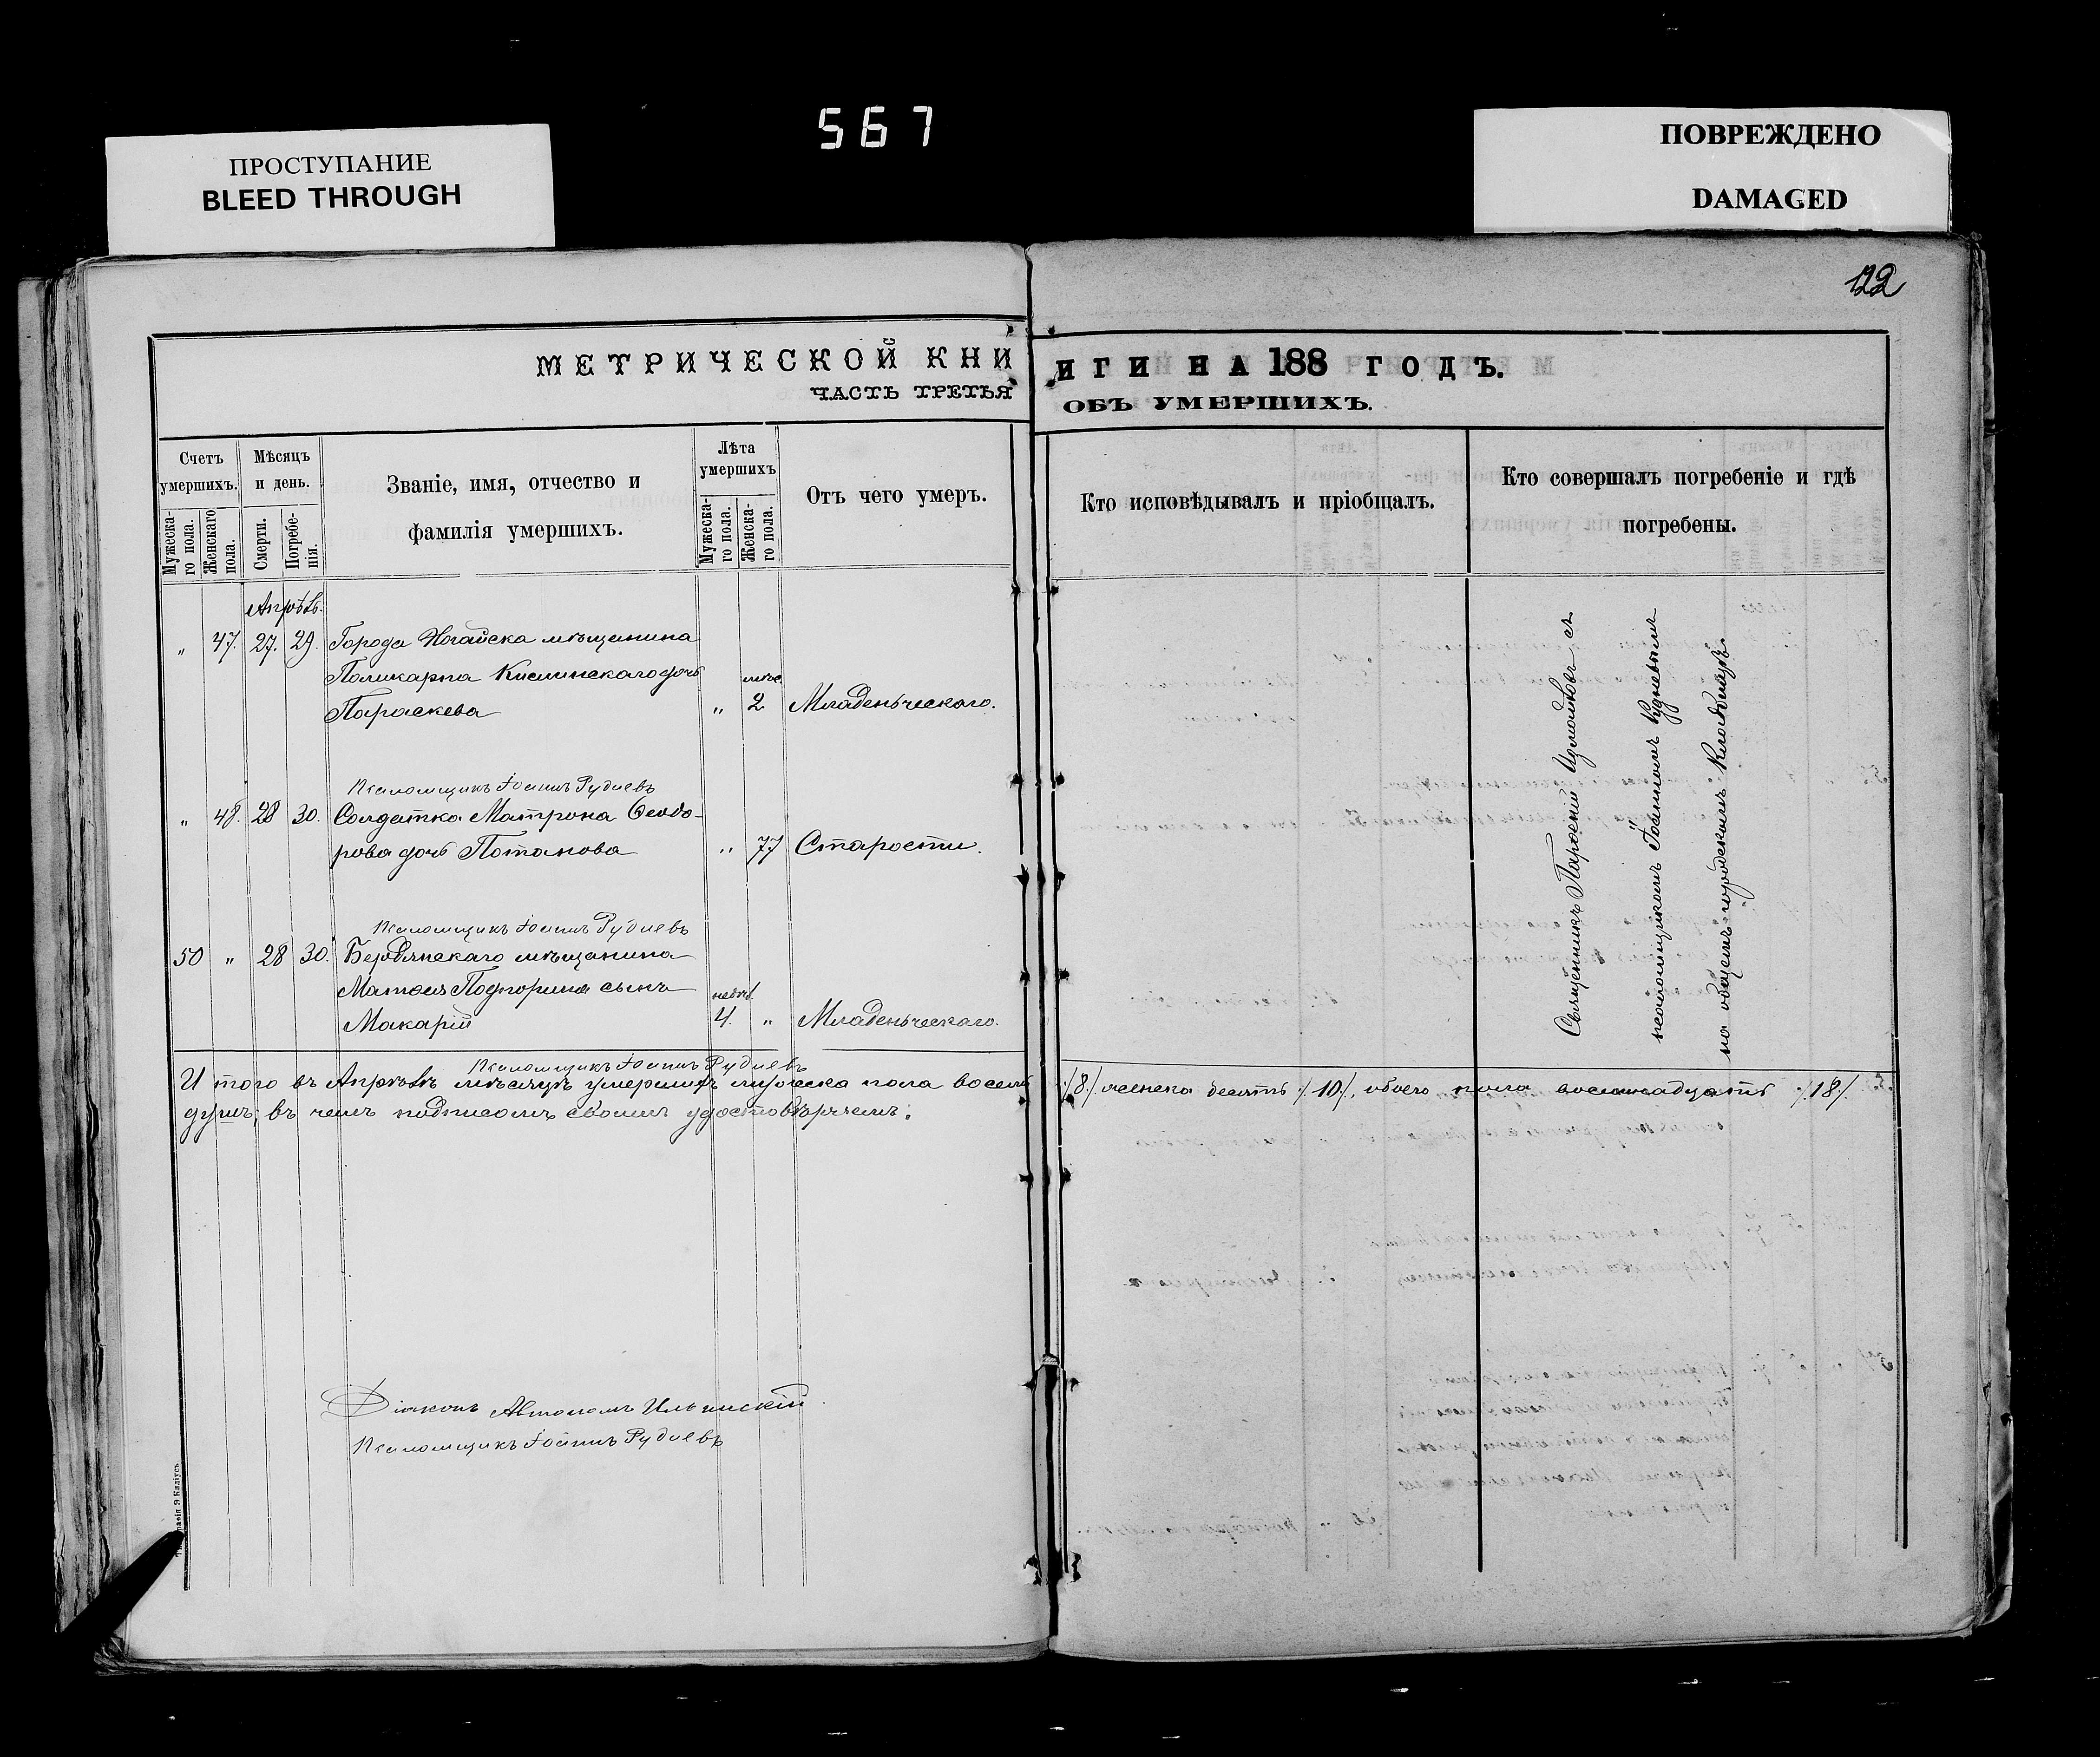 567
ПРОСТУПАНИЕ
BLEED THROUGH
ПОВРЕЖДЕНО
DAMAGED
122
МЕТРИЧЕСКОЙ КНИ
ИГИ НА 188 ГОДЪ.
ЧАСТЬ ТРЕТЬЯ
ОБЪ УМЕРШИХЪ.
Счетъ умершихъ.
Мужеска-го пола.
Женскаго пола.
Мѣсяцъ и день.
Смерти.
Погребе-нія.
Званіе, имя, отчество и
фамилія умершихъ.
Лѣта умершихъ
Мужеска-го пола.
Женска-го пола.
Отъ чего умеръ.
Кто исповѣдывалъ и пріобщалъ.
Кто совершалъ погребеніе и гдѣ
погребены.
Апрѣль.
" 47. 27. 29. Города Ногайска мѣщанина
Поликарпа Кислинскаго дочь мѣс.
Параскева " 2 Младенческаго.
Псаломщикъ Іоаннъ Рудневъ
" 48. 28 30. Солдатка Матрона Ѳеодо-
рова дочь Потапова " 77 Старости.
Псаломщикъ Іоаннъ Рудневъ
50 " 28 30. Бердянскаго мѣщанина
Матѳея Подгорина сынъ недѣл.
Макарій 4. " Младенческаго.
Священникъ Парѳеній Измайловъ съ
псаломщикомъ Іоанномъ Рудневымъ
на общемъ городскомъ кладбищѣ.
Псаломщикъ Іоаннъ Рудневъ
И того въ Апрѣлѣ мѣсяцѣ умершихъ мужеска пола восемь /8/ женска десять /10/, обоего пола восемнадцать /18/
душъ, въ чемъ подписомъ своимъ удостовѣряемъ.
Діаконъ Автономъ Ильинскій
Псаломщикъ Іоаннъ Рудневъ